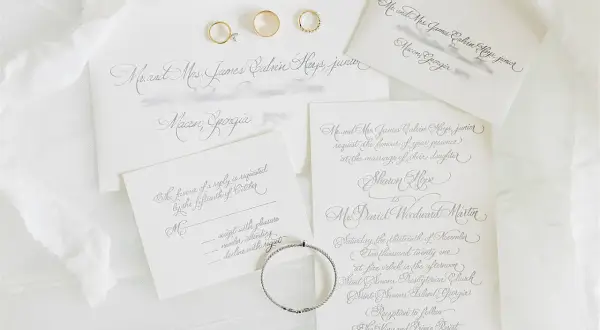 Mr. and Mrs. James Calvin Keys, junior
Macon, Georgia
Mr. and Mrs. James Calvin Keys, junior
Macon, Georgia
The favour of a reply is requested
by the fifteenth of October
M
accept with pleasure
decline with regret
Mr. and Mrs. James Calvin Keys, junior
request the honour of your presence
at the marriage of their daughter
Sharon
to
Mr. David Woodward Martin
Saturday, the thirteenth of November
Two thousand twenty-one
at five o'clock in the afternoon
Saint Simons Presbyterian Church
Saint Simons Island, Georgia
Reception to follow